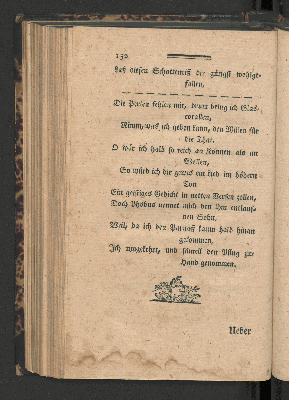 150
Laß diesen Schattenriß der gütigst wohlge-
fallen.
Die Perlen fehlen mir, drum bring ich Glas-
corallen,
Nimm, was ich geben kann, den Willen für
die That.
O wär ich halb so reich an Können als an
Wollen,
So wird ich dir ganz ein Lied im höhern
Ton
Ein geistiges Gedicht in netten Versen zollen,
Doch Phöbus nennet mich den ihm entlauf-
nen Sohn.
Weil, da ich den Parnaß kaum halb hinan
gekommen,
Ich umgekehrt, und schnell den Pflug zur
Hand genommen.
Ueber